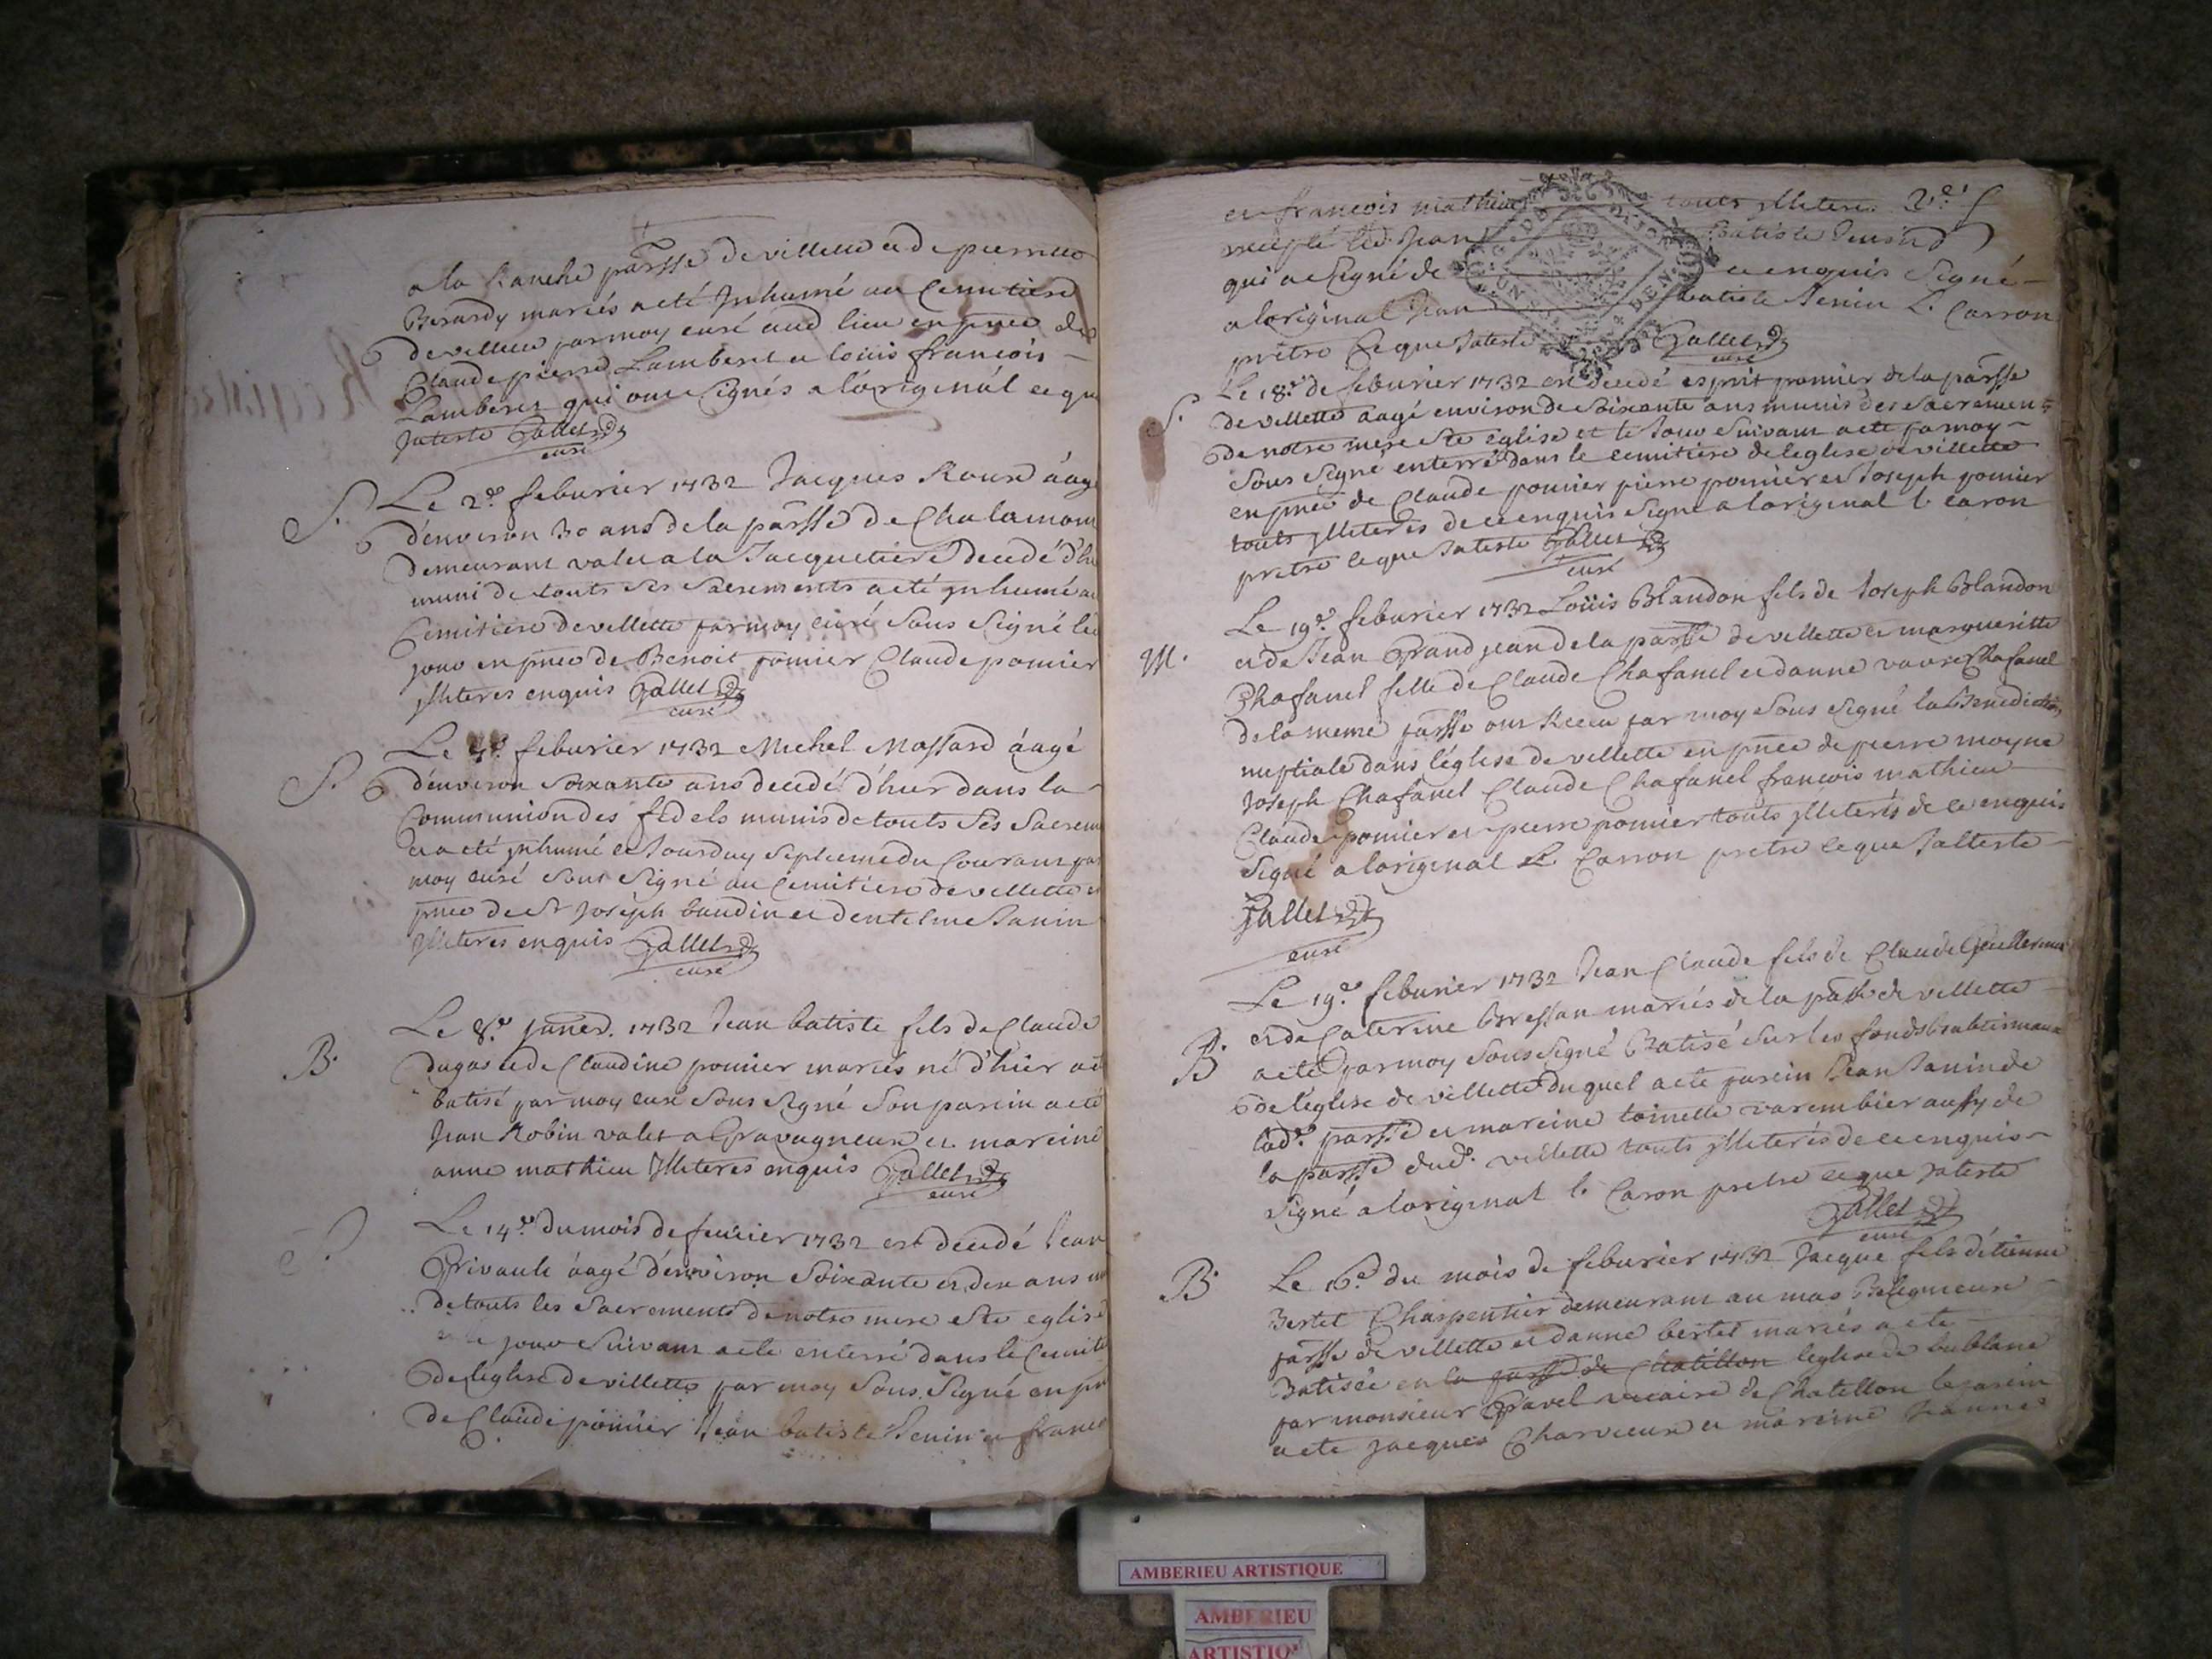 a la Ranche parsse de villette et de pierrette
Berardy mariés a eté Inhumé au Cemitiere
de villette par moy curé aud lieu en pnce de
Claude pierre Lamberet et loüis francois
Lamberet qui ont signés a l'original ce que
J'ateste Gallet
curé
S. Le 2e febvrier 1732 Jacques Roux áagé
d'environ 30 ans de la parsse de Chalamont
demeurant valet a la Jacquetiere decedé d'hie
muni de touts ses sacrements a eté inhumé au
Cemitiere de villette par moy curé sous signé led
jour en pnce de Benoit pomier Claude pomier
Illiteres enquis Gallet
curé
Le febvrier 1732 Michel Massard áagé
S. d'environ soixante ans decedé d'hier dans la
Communion des fidels munis de touts ses sacrem
et a eté inhumé ce Jourduy septieme du Courant par
moy curé sous signé au Cemitiere de villette en
pnce de Sr Joseph baudin et d'entelme Janin
Illiteres enquis Gallet
curé
Le 8e janer. 1732 Jean batiste fils de Claude
B. dugas et de Claudine pomier mariés né d'hier a eté
batisé par moy curé sous signé son parein a eté
Jean Robin valet a Gravagneux et mareine
anne mathieu Illiteres enquis Gallet
curé
S. Le 14e du mois de fevrier 1732 est decedé Jean
Privault áagé d'environ soixante et dix ans
de touts les sacrements de notre mere ste eglise
et le jour suivant a ete enterré dans le Cemite
de l'eglise de villette par moy sous signé en pn
de Claude pomier Jean batiste Jenin et franco
et francois mathieu touts illiteres 2e. f
excepté led. Jean batiste Jenin
qui a signé de ce enquis signé
a loriginal Jean batiste Jenin L. Carron
prêtre ce que J'ateste Gallet
curé
Le 18e de febvrier 1732 est decedé esprit pomier de la parsse
S. de villette aagé environ de soixante ans munis des sacrements
de notre mere ste eglise et le Jour suivant a ete par moy
sous signé enterré dans le cemitiere de leglise de villette
en pnce de Claude pomier pierre pomier et Joseph pomier
touts illiteres de ce enquis signé a loriginal l. caron
pretre ce que J'ateste Gallet
curé
Le 19e febvrier 1732 Loüis Blandon fils de Joseph Blandon
M. et de Jean Grand jean de la parsse de villette et marguerite
Chafanel fille de Claude Chafanel et danne Chafanel
de la meme parsse ont Receu par moy sous signé la Benediction
nuptiale dans l'église de villette en pnce de pierre moyne
Joseph Chafanel Claude Chafanel francois mathieu
Claude pomier et pierre pomier touts illiterés de ce enquis
signé a loriginal L. Carron pretre ce que J'atteste
Gallet
curé
Le 19e febvrier 1732 Jean Claude fils de Claude Guillermin
B. et de Caterine bressan mariés de la parsse de villette
a eté par moy sous signé Batisé sur les fonds baptismaux
de l'église de villette duquel a ete parein Jean Janin de
lade. parsse et mareine toinette varembier aussy de
la parsse dud. villette touts illiterés de ce enquis
signé a loriginal l. Caron pretre ce que J'ateste
Gallet
curé
B. Le 16e du mois de febvrier 1732 Jacque fils d'étienne
Bertet Charpentier demeurant au mas Beligneux
parsse de villette et danne bertet mariés a ete
Batisée en la parsse de Chatillon leglise de bublane
par monsieur Gravel vicaire de Chatillon le parein
a ete jacques Charvieux et mareine Jeanne
AMBERIEU ARTISTIQUE
AMBERIEU
ARTISTIQ